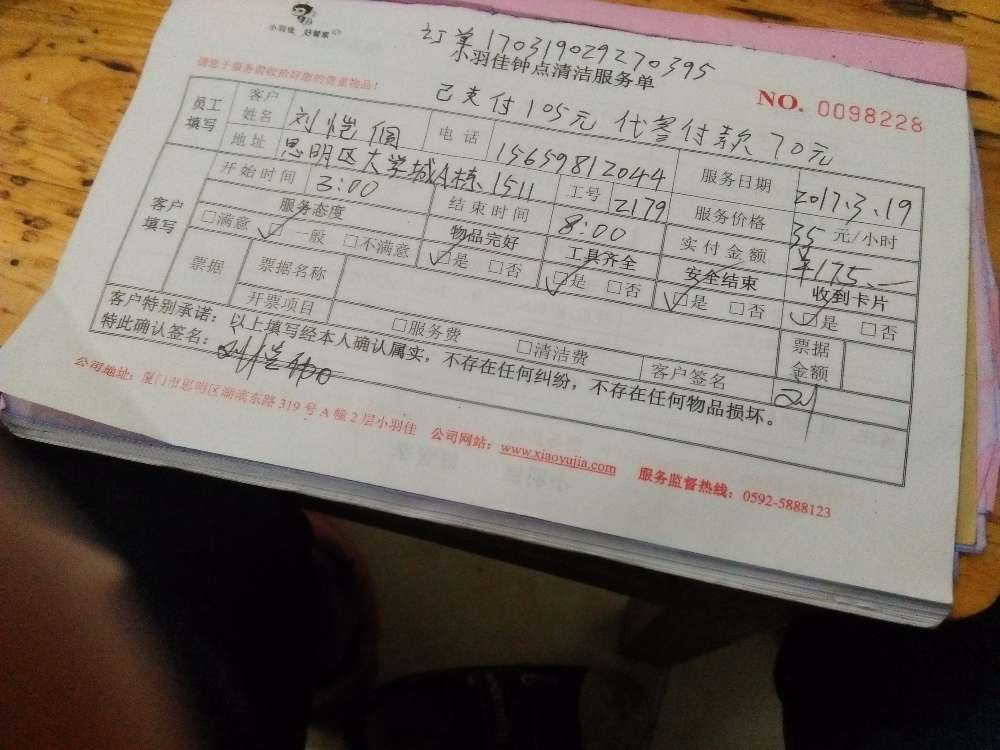 小羽佳 好管家
订单170319029270395
小羽佳钟点清洁服务单
请您于服务前收拾好您的贵重物品！
NO. 0098228
已支付105元 代客付款70元
员工填写 客户姓名 刘恺佩 电话 15659812044 服务日期 2017.3.19
地址 思明区大学城A栋1511 工号 2179 服务价格 35元/小时
客户填写 开始时间 3:00 结束时间 8:00 实付金额 ¥175.—
服务态度 物品完好 工具齐全 安全结束 收到卡片
□满意 ☑一般 □不满意 ☑是 □否 ☑是 □否 ☑是 □否 ☑是 □否
票据 票据名称 票据金额
开票项目 □服务费 □清洁费 客户签名
客户特别承诺：以上填写经本人确认属实，不存在任何纠纷，不存在任何物品损坏。
特此确认签名：
公司地址：厦门市思明区湖滨东路319号A幢2层小羽佳 公司网站：www.xiaoyujia.com 服务监督热线：0592-5888123